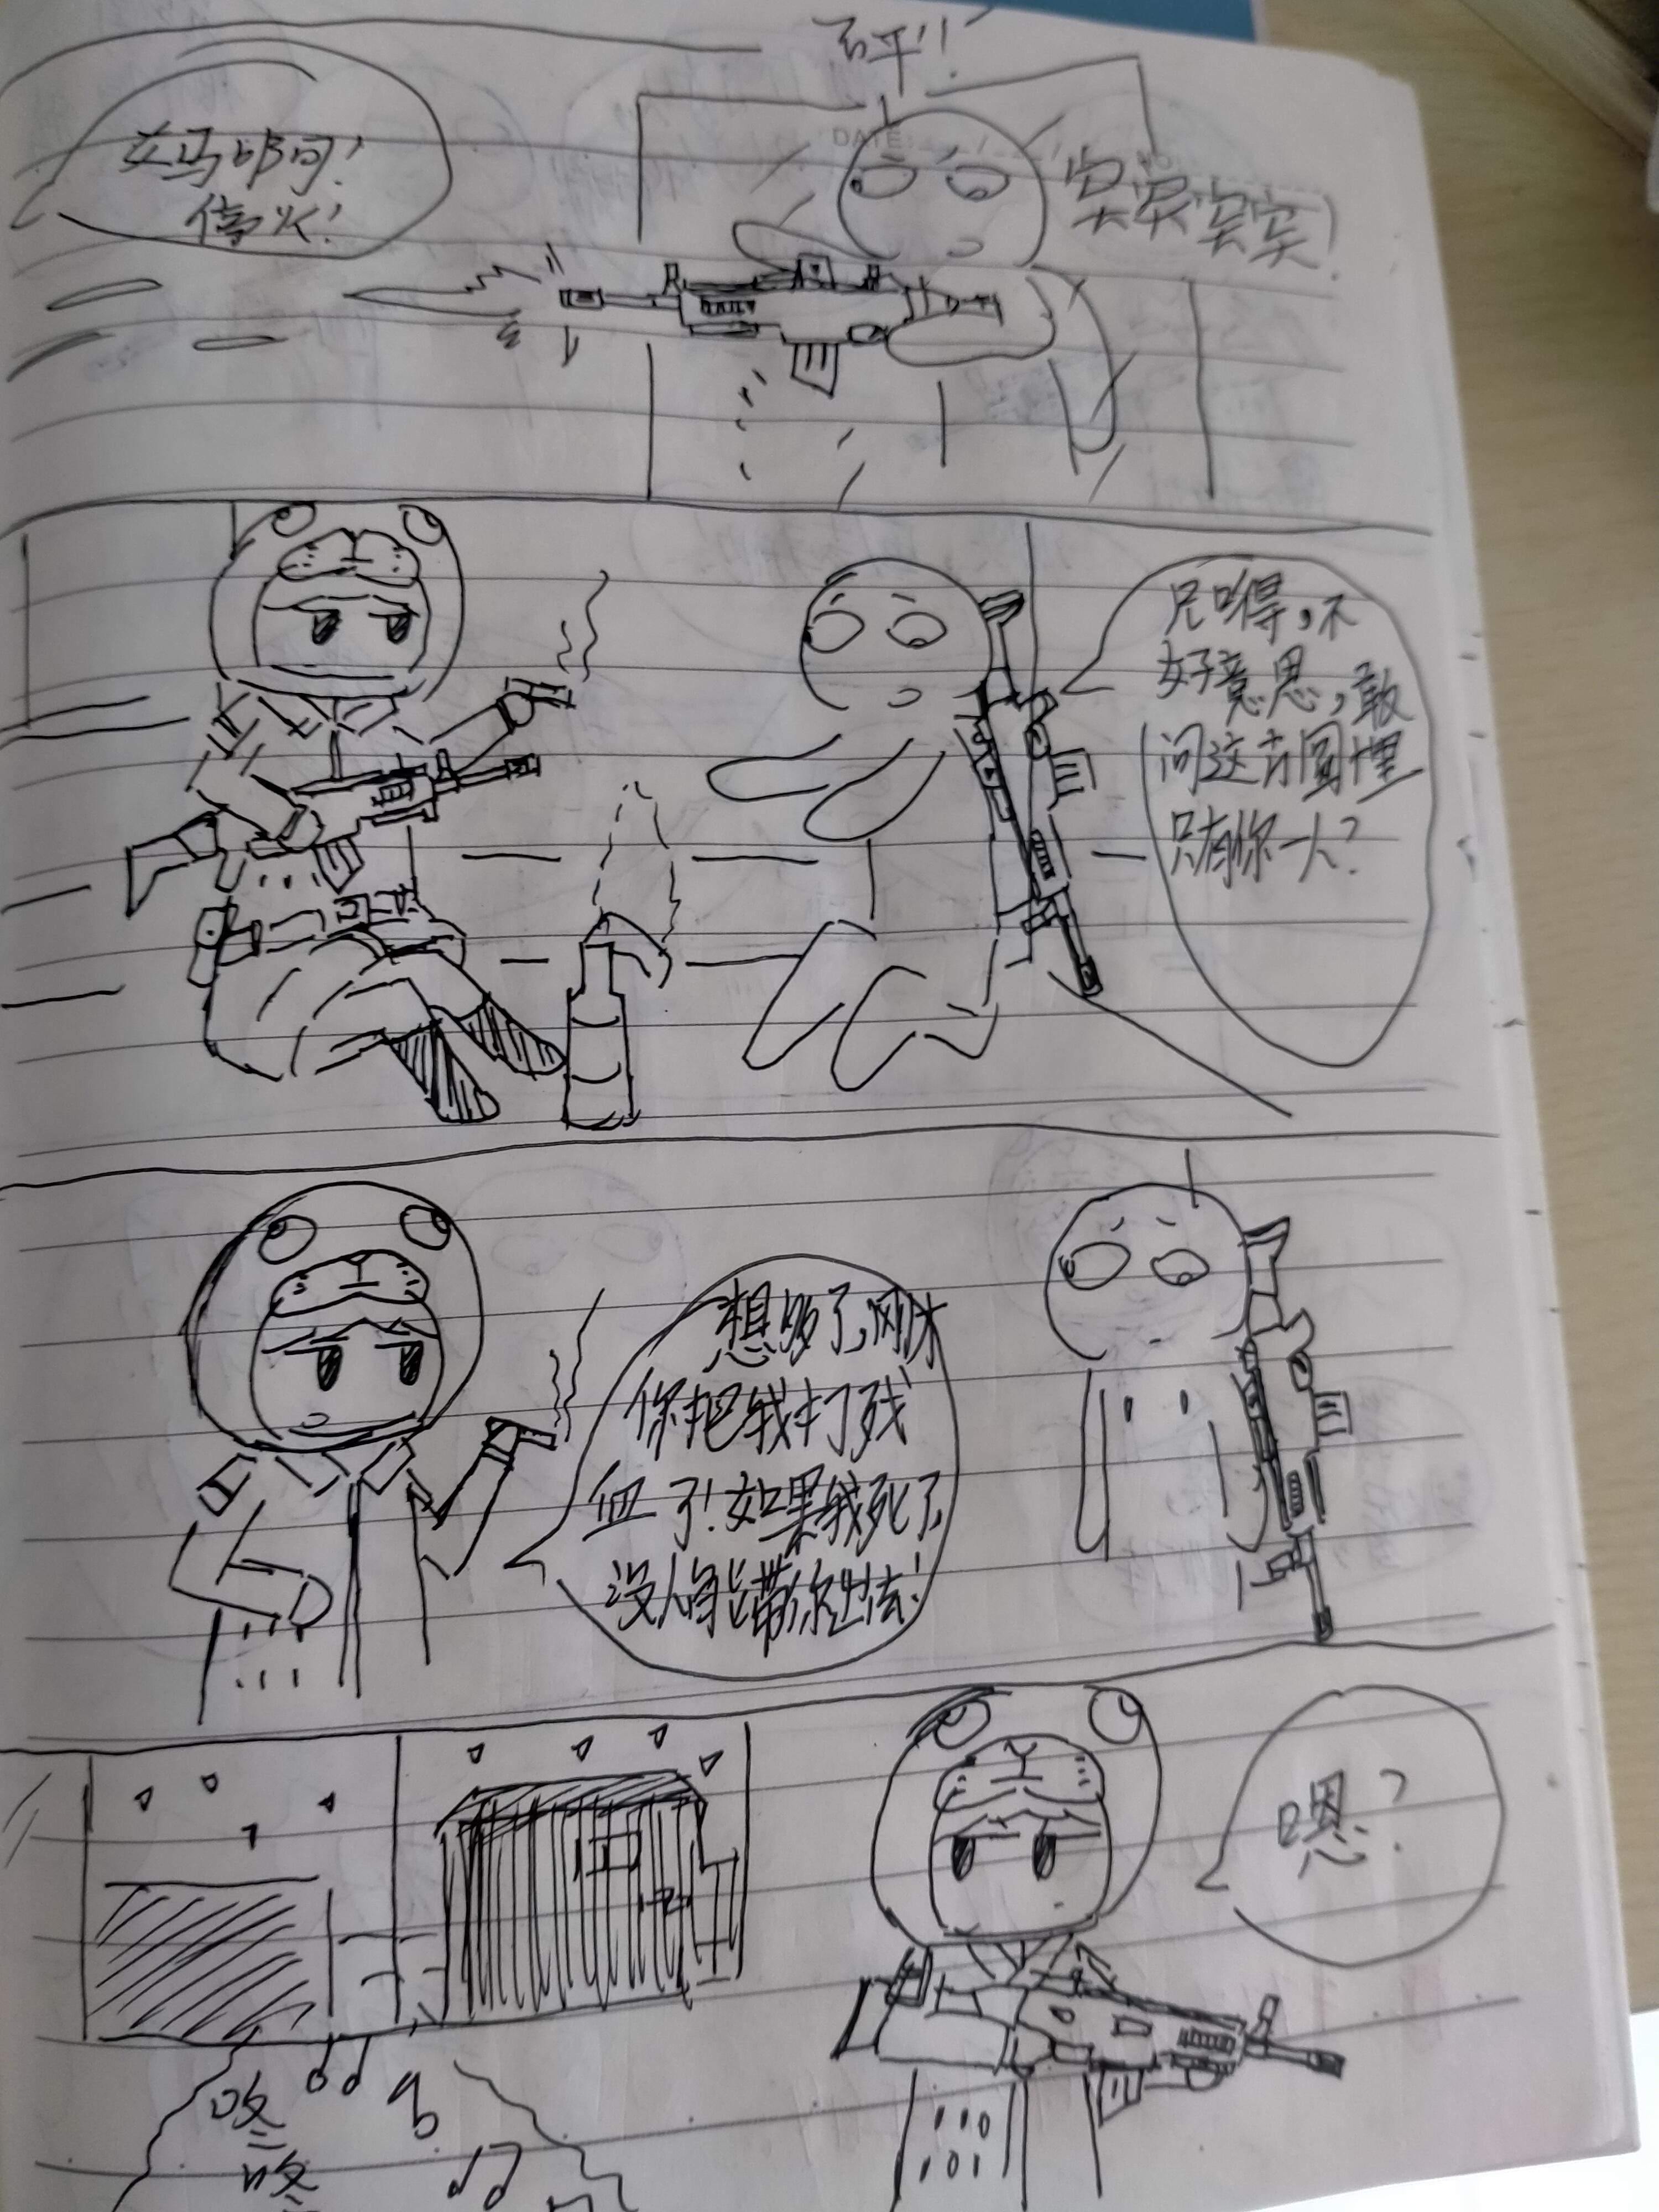 砰!!
DATE:
NO.
停火!
突突突突!
兄嘚,不
好意思,敢
问这方圆十里
只有你一人?
想够了,刚才
你把我打残
血了!如果我死了
没人能带你出去!
嗯?
咚
咚